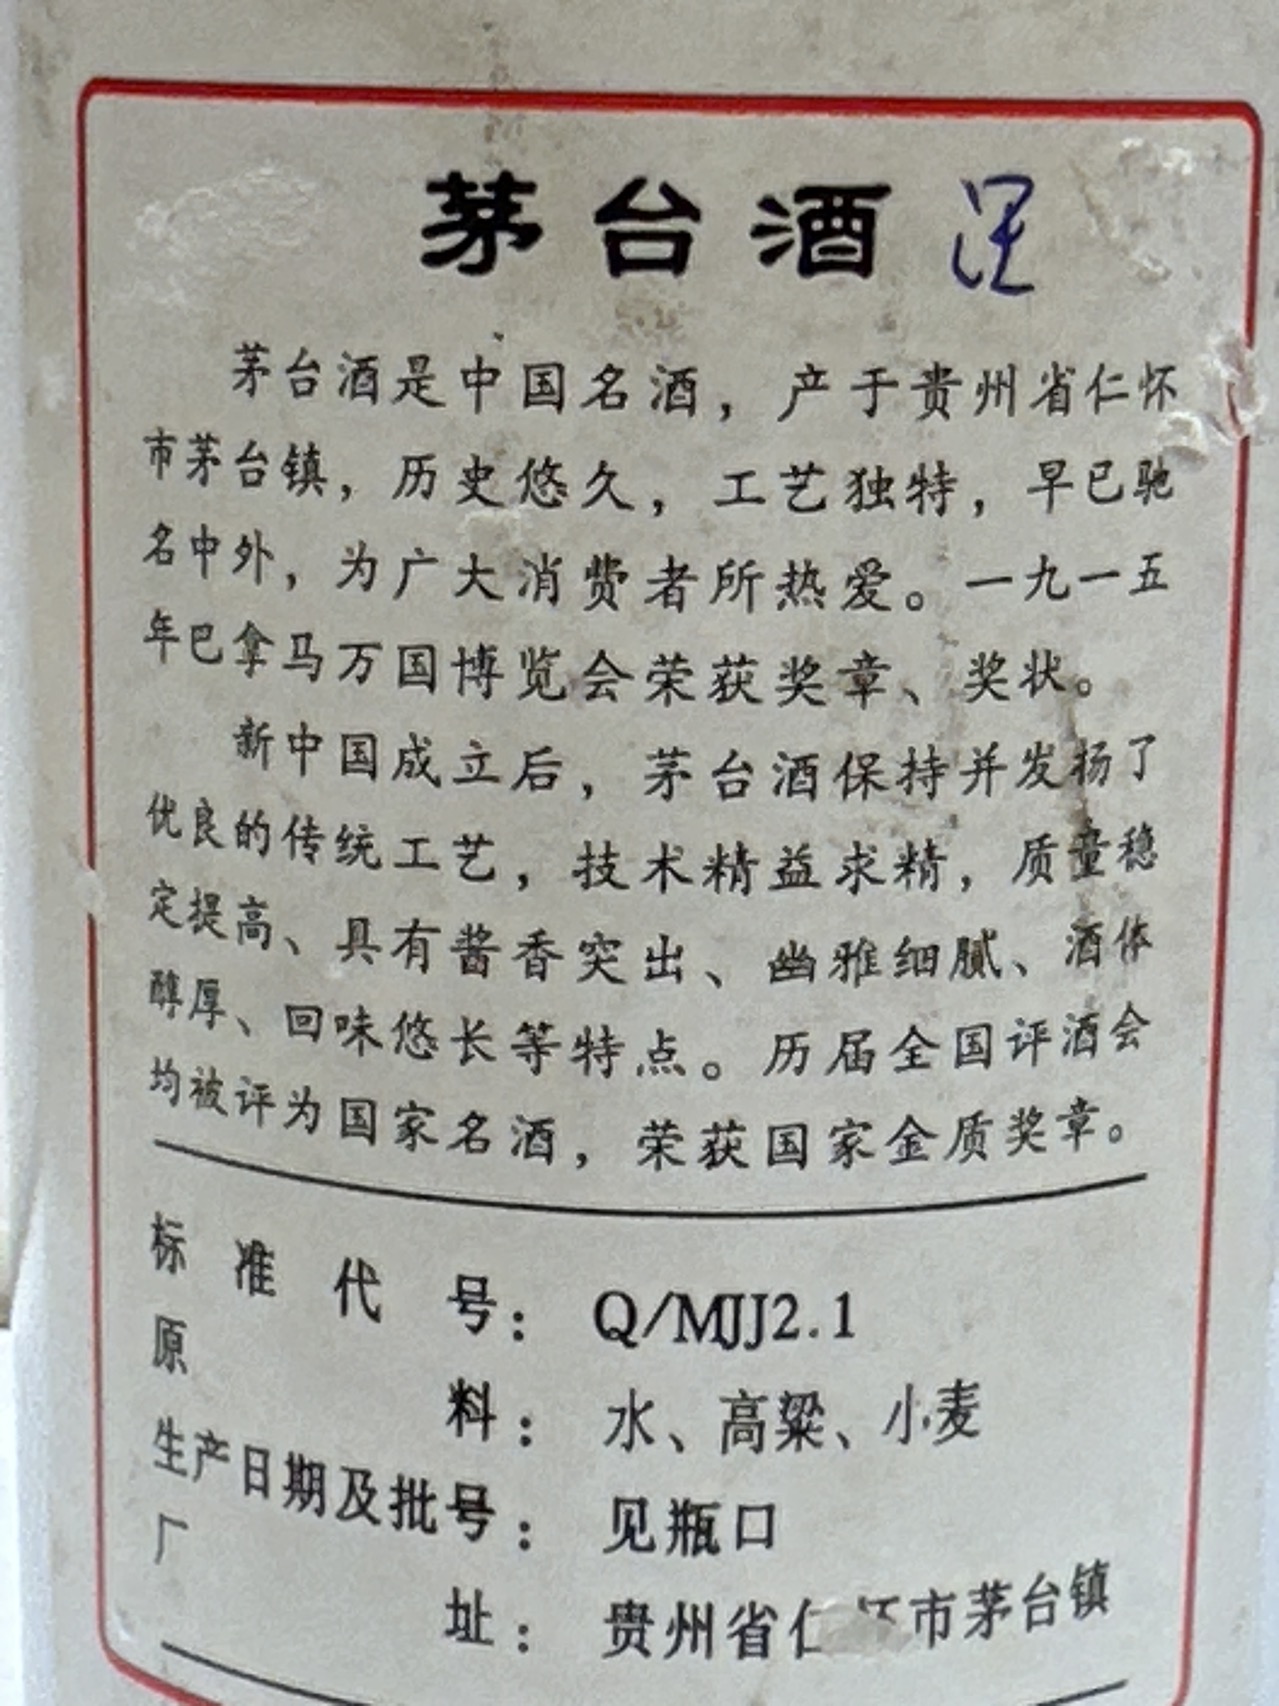 茅台酒
茅台酒是中国名酒，产于贵州省仁怀
市茅台镇，历史悠久，工艺独特，早已驰
名中外，为广大消费者所热爱。一九一五
年巴拿马万国博览会荣获奖章、奖状。
新中国成立后，茅台酒保持并发扬了
优良的传统工艺，技术精益求精，质量稳
定提高、具有酱香突出、幽雅细腻、酒体
醇厚、回味悠长等特点。历届全国评酒会
均被评为国家名酒，荣获国家金质奖章。
标准代号：Q/MJJ2.1
原料：水、高粱、小麦
生产日期及批号：见瓶口
厂址：贵州省仁市茅台镇